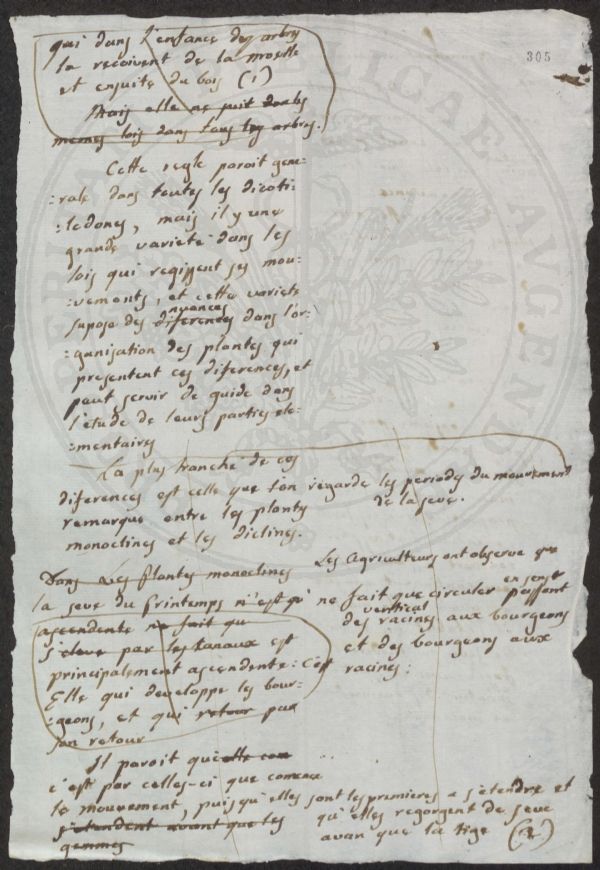 305
qui dans l'enfance des arbres
la recoivent de la moelle
et ensuite du bois (1)
Mais elle ne suit dans les
memes lois dans tous les arbres.
Cette regle paroit gene-
:rale dans toutes les dicoti-
:ledones, mais il y une
grande varieté dans les
lois qui regissent ses mou-
:vements, et cette varieté
nuances
supose des diferences dans l'or-
:ganisation des plantes qui
presentent ces diferences, et
peut servir de guide dans
l'etude de leurs parties ele-
:mentaires
La plus tranché de ces
diferences est celle que l'on
remarque entre les plantes
monoclines et les diclines.
regarde les periodes du mouvement
de la seve.
Dans Les plantes monoclines
la seve du Printemps n'est qu'
ascendente ne fait que
s'eleve par les canaux est
principalement ascendente: C'est
Elle qui developpe les bour-
:geons, et qui retour par
son retour
Les Agriculteurs ont observé que
ne fait que circuler en sens passant
vertical
des racines aux bourgeons
et des bourgeons aux
racines:
Il paroit qu'elle com
c'est par celles-ci que comence
le mouvement, puisqu'elles sont les premieres a s'etendre et
s'etendent avant que les
gemmes
qu'elles regorgent de seve
avan que la tige (2)